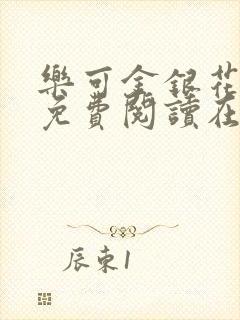 樂可金銀花
免費閱讀在
辰東1